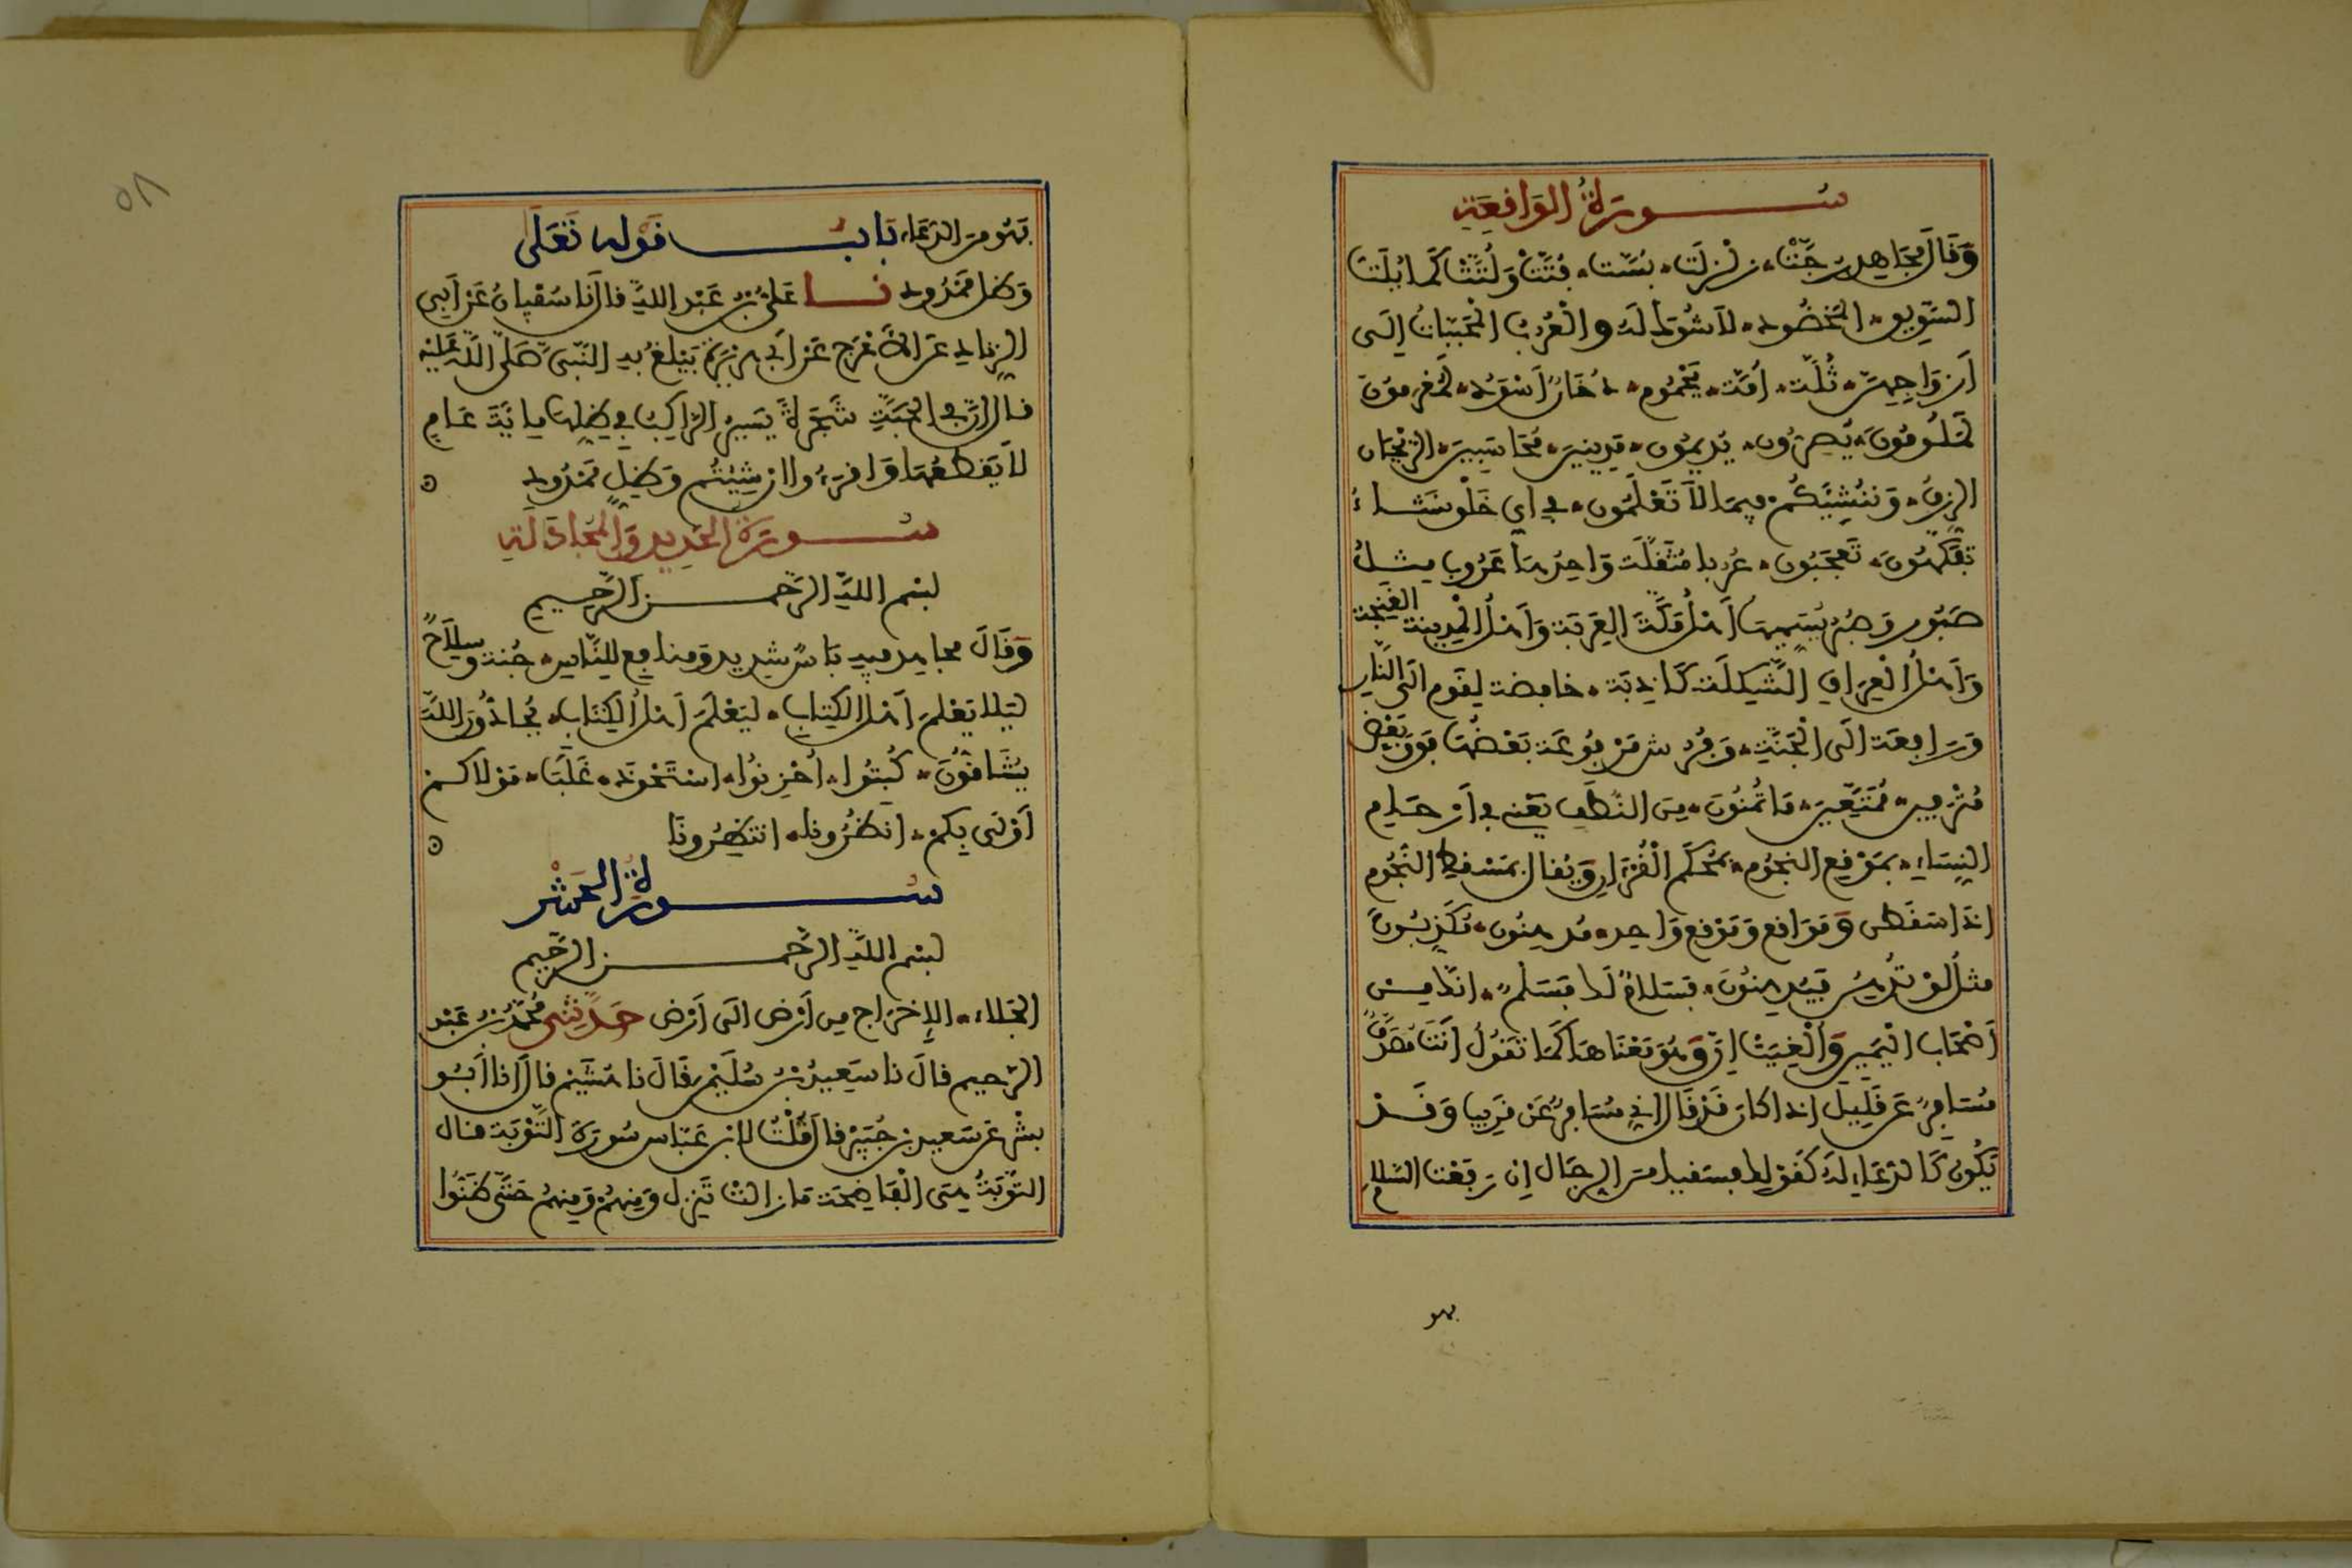 سورة الواقعة
وقال مجاهد رجت، زلزلت، بست، فتت ولتت كما يلت
السويق، المخضود، لا شوك له والعرب المحببات إلى
أزواجهن، ثلة، أمة، يحموم، دخان أسود، لمغرمون
لملومون، يصرون، يديمون، مدينين، محاسبين، الريحان
الرزق، وننشئكم فيما لا تعلمون، في أي خلق نشاء
تفكهون، تعجبون، عربا مثقلة واحدها عروب مثل
صبور وصبر يسميها أهل مكة العربة وأهل المدينة الغنجة
وأهل العراق الشكلة كاذبة، خافضة لقوم إلى النار
ورافعة إلى الجنة، وفرش مرفوعة بعضها فوق بعض
مترفين، متنعمين، ما تمنون، من النطف يعني في أرحام
النساء، بموقع النجوم، بمحكم القرآن ويقال بمسقط النجوم
إذا سقطن ومواقع وموقع واحد، مدهنون، مكذبون
مثل لو تدهن فيدهنون، فسلام لك فسلم، انك من
أصحاب اليمين وألغيت إن وهو معناها كما تقول أنت مصدق
مسافر عن قليل إذا كان قد قال إني مسافر عن قريب وقد
يكون كالدعاء له كقولك فسقيا من الرجال إن رفعت السلام
فهو
فهو من الدعاء باب قوله تعلى
وظل ممدود نا علي بن عبد الله قال نا سفيان عن أبي
الزناد عن الأعرج عن أبي هريرة يبلغ به النبي صلى الله عليه
قال إن في الجنة شجرة يسير الراكب في ظلها ماية عام
لا يقطعها واقرءوا إن شيتم وظل ممدود
سورة الحديد والمجادلة
بسم الله الرحمن الرحيم
وقال مجاهد فيه بأس شديد ومنافع للناس، جنة وسلاح
ليلا يعلم أهل الكتاب، ليعلم أهل الكتاب، يحادون الله
يشاقون، كبتوا، أخزنوا، استحوذ، غلب، مولاكم
أولى بكم، انظرونا، انتظرونا
سورة الحشر
بسم الله الرحمن الرحيم
الجلاء، الإخراج من أرض إلى أرض حدثني محمد بن عبد
الرحيم قال نا سعيد بن سليمن قال نا هشيم قال انا أبو
بشر عن سعيد بن جبير قال قلت لابن عباس سورة التوبة قال
التوبة هي الفاضحة ما زالت تنزل ومنهم ومنهم حتى ظنوا